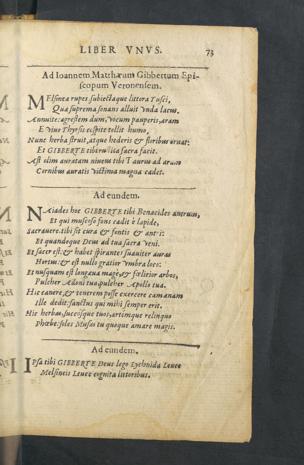 LIBER VNVS. 73
Ad Ioannem Matthæum Gibbertum Epi-
scopum Veronensem.
MElsineæ rupes subiectaque littora Tusci,
Qua suprema sonans alluit vnda lacus,
Annuite: agrestem dum, vicum pauperis, aram
E viuo Thyrsis cespite tollit humo,
Nunc herba struit, atque hederis & floribus ornat:
Et GIBBERTE tibi sacra facit.
Ast olim auratam niueus tibi Taurus ad aram
Cornibus auratis victima magna cadet.
Ad eundem.
NAiades hoc GIBBERTE tibi Benacides antrum,
Et qui muscoso fons cadit è lapide,
Sacrauere. tibi sit cura & fontis & antri:
Et quandoque Deus ad tua sacra veni.
Et sacer est: & habet spirantes suauiter auras
Hortus: & est nullo gratior vmbra loco:
Et nusquam est longæua magè, & fœlicior arbos,
Pulcher Adoni tuo, pulcher Apollo tua.
Hic canere, & venerem posse exercere camœnam
Ille dedit: sanctus qui mihi semper erit.
Hic herbas, succosque tuos, artemque relinquo
Phœbe: soles Musas tu quoque amare magis.
Ad eundem.
IPsa tibi GIBBERTE Deus lego Lychnida Leuce
Melsineis Leuce cognita littoribus.